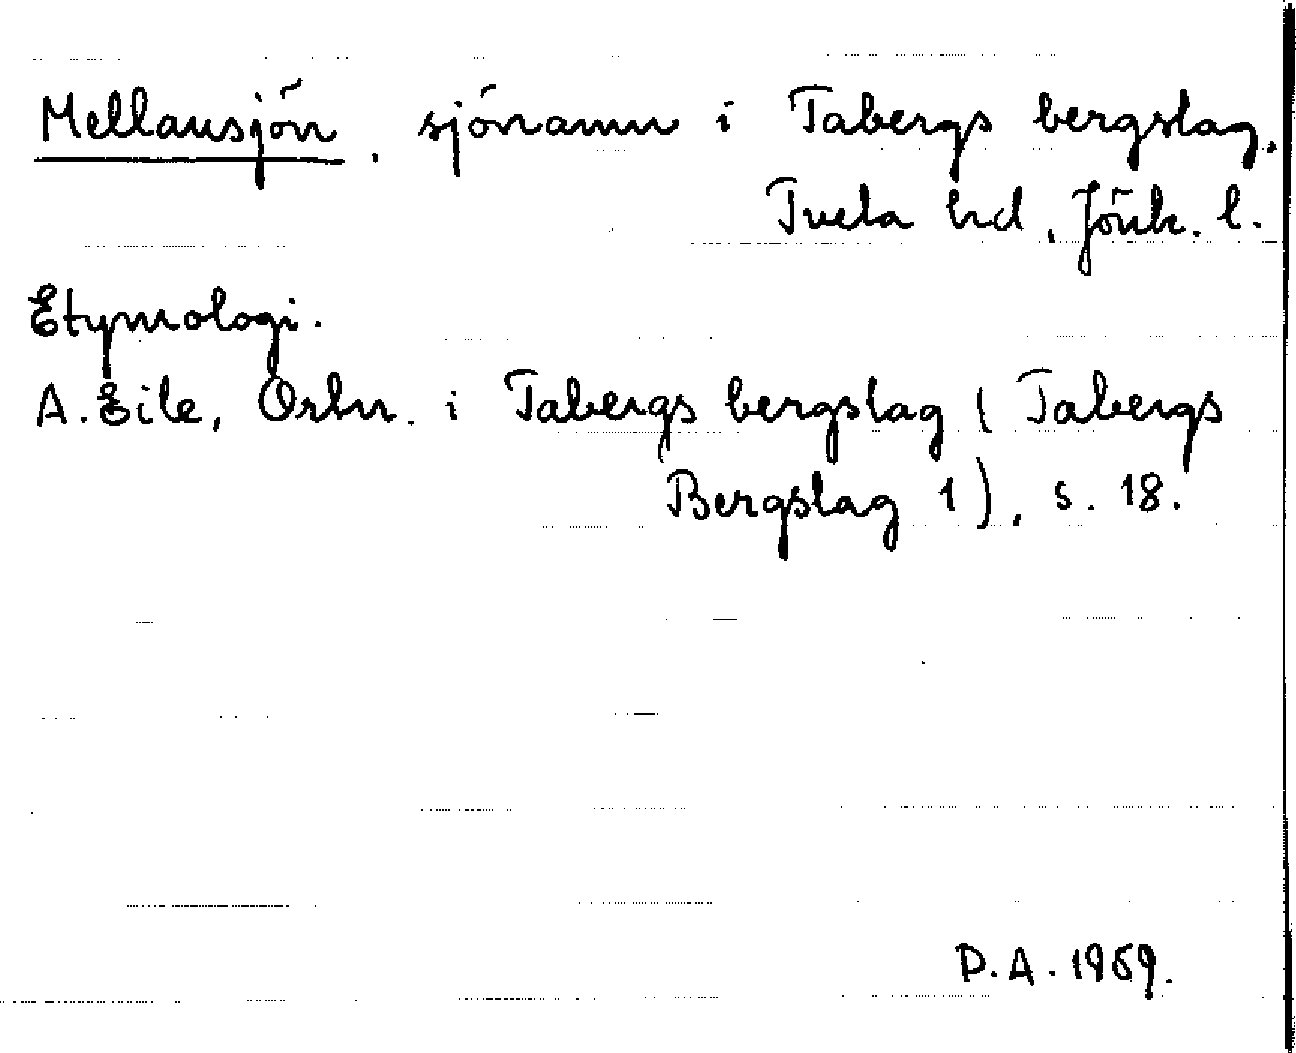 Mellansjön, sjönamn i Tabergs bergslag,
Tveta hd, Jönk. l.
Etymologi.
A. Eile, Ortn. i Tabergs bergslag (Tabergs
Bergslag 1), s. 18.
P.A. 1969.